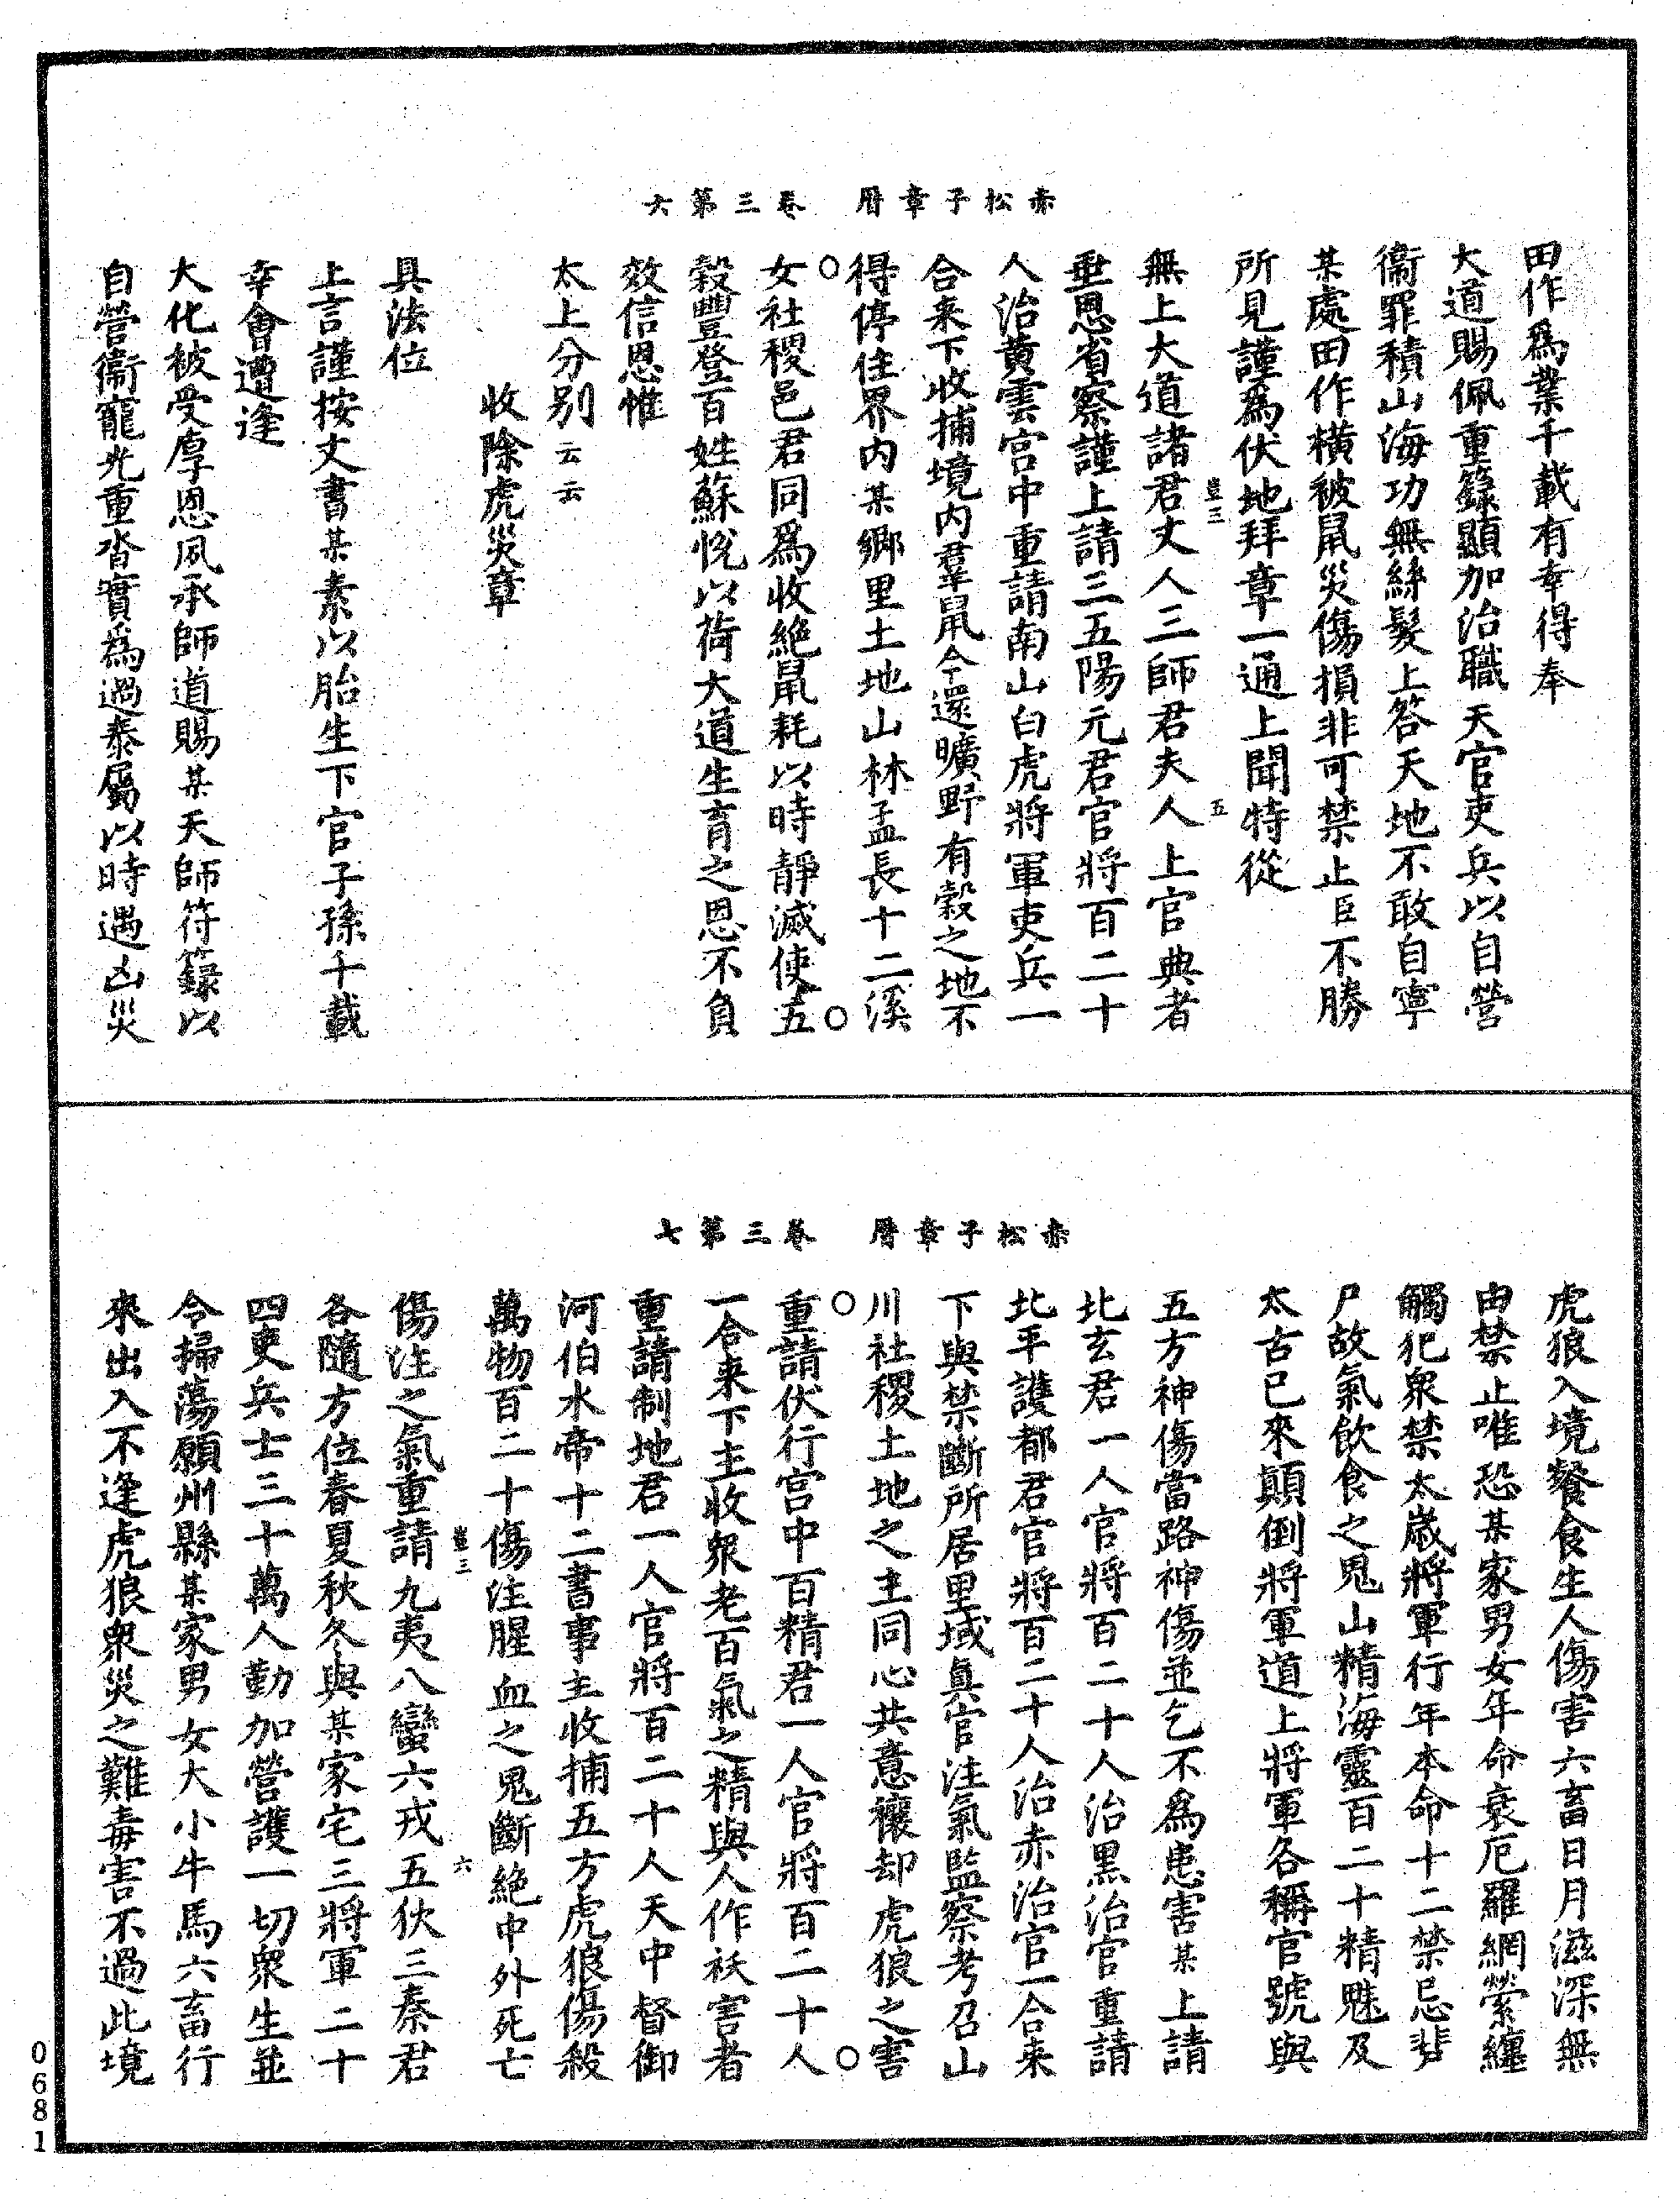 赤松子章曆　卷三第六
田作爲業千載有幸得奉
大道賜佩重籙顯加治職天官吏兵以自營
衞罪積山海功無絲髮上答天地不敢自寧
某處田作橫被鼠災傷損非可禁止臣不勝
所見謹爲伏地拜章一通上聞特從
豈三　五
無上大道諸君丈人三師君夫人上官典者
垂恩省察謹上請三五陽元君官將百二十
人治黃雲宮中重請南山白虎將軍吏兵一
合来下收捕境內群鼠令還曠野有穀之地不
得停住界內某鄉里土地山林孟長十二溪
女社稷邑君同爲收絶鼠耗以時靜滅使五
穀豐登百姓蘇悅以荷大道生育之恩不負
效信恩惟
太上分别云云
收除虎災章
具法位
上言謹按文書某素以胎生下官子孫千載
幸會遭逢
大化被受厚恩夙承師道賜某天師符籙以
自營衞寵光重沓實爲過泰屬以時遇凶災
赤松子章曆　卷三第七
虎狼入境餐食生人傷害六畜日月滋深無
由禁止唯恐某家男女年命衰厄羅網縈纏
觸犯衆禁太歲將軍行年本命十二禁忌非
尸故氣飲食之鬼山精海靈百二十精魅及
太古已來顛倒將軍道上將軍各稱官號與
五方神傷當路神傷並乞不爲患害某上請
北玄君一人官將百二十人治黑治官重請
北平護都君官將百二十人治赤治官一合来
下與禁斷所居里域真官注氣監察考召山
川社稷土地之主同心共意禳却虎狼之害
重請伏行宮中百精君一人官將百二十人
一合来下主收衆老百氣之精與人作袄害者
重請制地君一人官將百二十人天中督御
河伯水帝十二書事主收捕五方虎狼傷殺
萬物百二十傷注腥血之鬼斷絶中外死亡
豈三　六
傷注之氣重請九夷八蠻六戎五狄三秦君
各隨方位春夏秋冬與某家宅三將軍二十
四吏兵士三十萬人勤加營護一切衆生並
令掃蕩願州縣某家男女大小牛馬六畜行
來出入不逢虎狼衆災之難毒害不過此境
0681